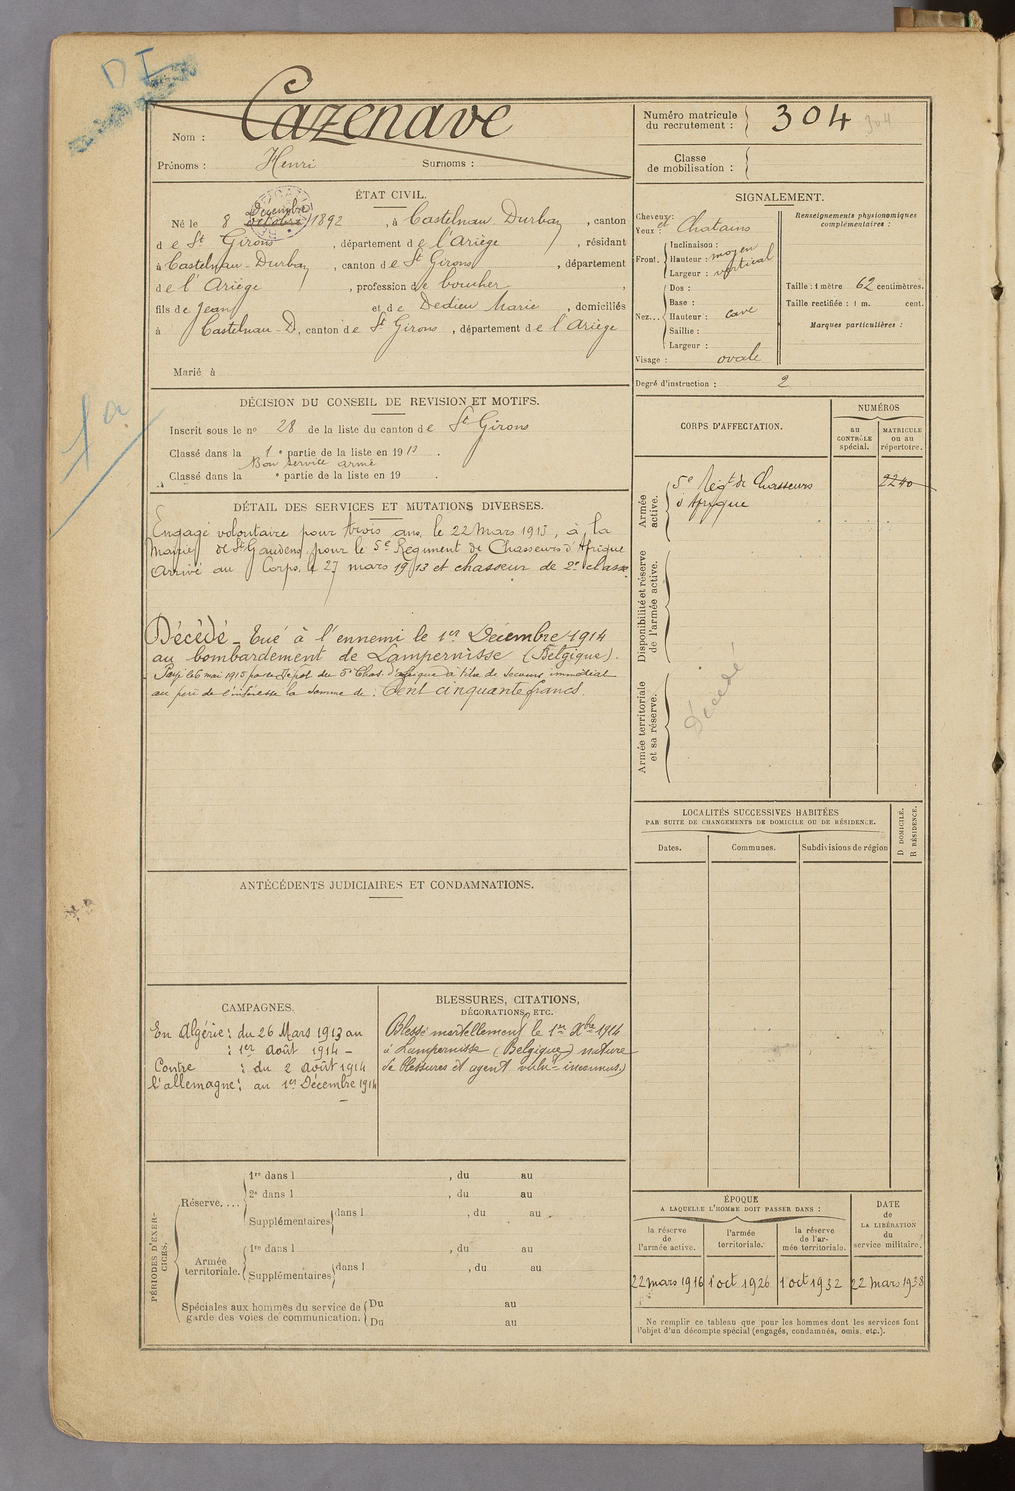 DI
Nom : Cazenave
Prénoms : Henri Surnoms :
Numéro matricule
du recrutement : 304 304
Classe
de mobilisation :
ÉTAT CIVIL.
Décembre
Né le 8 octobre 1892, à Castelnau Durban, canton
de St Girons, département de l'Ariège, résidant
à Castelnau-Durban, canton de St Girons, département
de l'Ariège, profession de boucher
fils de Jean et de Dedieu Marie, domiciliés
à Castelnau-D, canton de St Girons, département de l'Ariège
Marié à
SIGNALEMENT.
Cheveux : et Chatains
Yeux :
Front. Inclinaison :
Hauteur : moyen
Largeur : vertical
Nez... Dos :
Base :
Hauteur : cave
Saillie :
Largeur :
Visage : ovale
Renseignements physionomiques
complémentaires :
Taille : 1 mètre 62 centimètres.
Taille rectifiée : 1 m. cent.
Marques particulières :
Degré d'instruction : 2
1a
DÉCISION DU CONSEIL DE REVISION ET MOTIFS.
Inscrit sous le no 28 de la liste du canton de St Girons
Classé dans la 1e partie de la liste en 1913.
Bon service armé
Classé dans la e partie de la liste en 19 .
DÉTAIL DES SERVICES ET MUTATIONS DIVERSES.
Engagé volontaire pour trois ans, le 22 Mars 1913, à la
Mairie de St Gaudens, pour le 5e Régiment de Chasseurs d'Afrique
Arrivé au Corps, le 27 mars 1913 et chasseur de 2e classe
Décédé - Tué à l'ennemi le 1er Décembre 1914
au bombardement de Lampernisse (Belgique).
Payé le 6 mai 1915 par le Dépot du 5e Chas. d'Afrique à titre de secours immédiat
au père de l'intéressé la somme de : Cent cinquante francs.
CORPS D'AFFECTATION.
NUMÉROS
au
CONTRÔLE
spécial.
MATRICULE
ou au
répertoire.
Armée
active.
5e Régt de Chasseurs 2240
d'Afrique
Disponibilité et réserve
de l'armée active.
Armée territoriale
et sa réserve.
Décédé
LOCALITÉS SUCCESSIVES HABITÉES
PAR SUITE DE CHANGEMENTS DE DOMICILE OU DE RÉSIDENCE.
Dates. Communes. Subdivisions de région
D DOMICILE.
R RÉSIDENCE.
ANTÉCÉDENTS JUDICIAIRES ET CONDAMNATIONS.
CAMPAGNES.
En Algérie : du 26 Mars 1913 au
: 1er Août 1914 -
Contre : du 2 Août 1914
l'allemagne : au 1er Décembre 1914
BLESSURES, CITATIONS,
DÉCORATIONS, ETC.
Blessé mortellement le 1er Xbre 1914
à Lampernisse (Belgique) nature
de blessures et agent vulnt inconnus)
PÉRIODES D'EXERCICES.
Réserve.... 1re dans l , du au
2e dans l , du au
Supplémentaires dans l , du au .
Armée
territoriale. 1re dans l , du au
Supplémentaires dans l , du au
Spéciales aux hommes du service de
garde des voies de communication. Du au
Du au
ÉPOQUE
A LAQUELLE L'HOMME DOIT PASSER DANS :
la réserve
de
l'armée active.
l'armée
territoriale.
la réserve
de l'ar-
mée territoriale.
DATE
de
LA LIBÉRATION
du
service militaire.
22 mars 1916 1 oct 1926 1 oct 1932 22 mars 1938
Ne remplir ce tableau que pour les hommes dont les services font
l'objet d'un décompte spécial (engagés, condamnés, omis, etc.).